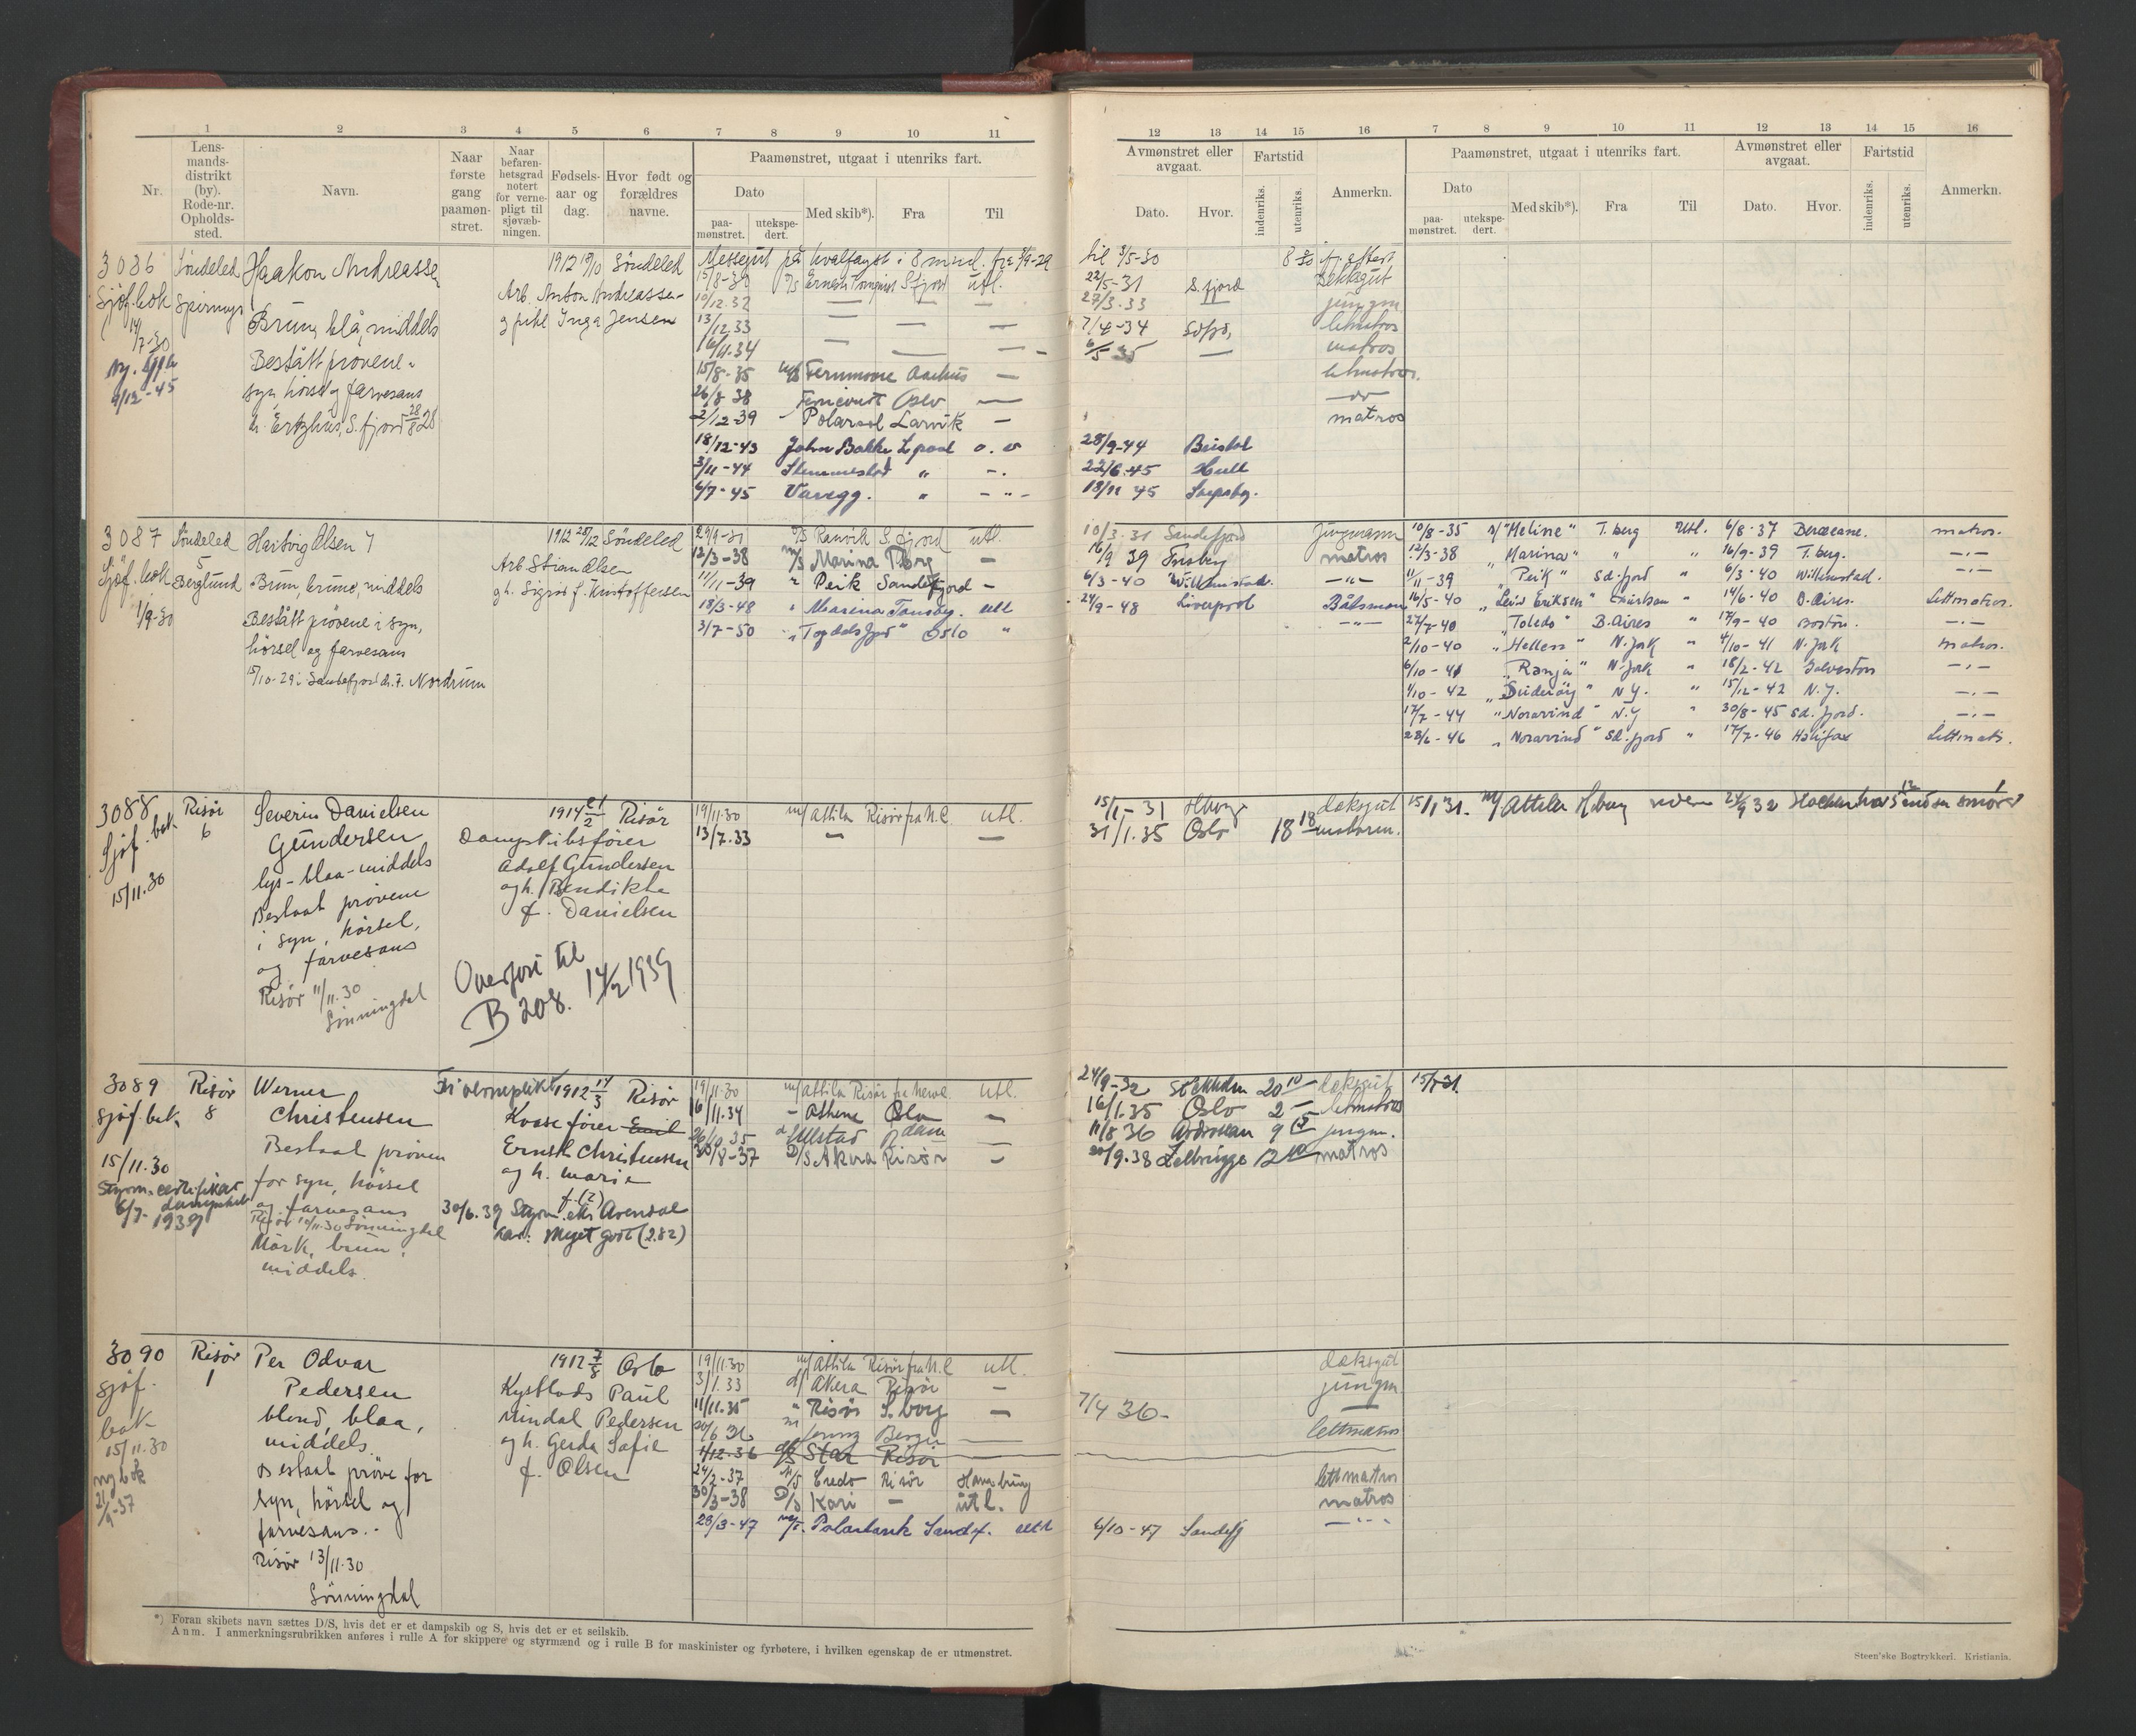 1 2 3 4 5 6 7 8 9 10 11
Nr.
Lens-
mands-
distrikt
(by).
Rode-nr.
Opholds-
sted.
Navn.
Naar
første
gang
paamøn-
stret.
Naar
befaren-
hetsgrad
notert
for verne-
pligt til
sjøvæb-
ningen.
Fødsels-
aar og
dag.
Hvor født og
forældres
navne.
Paamønstret, utgaat i utenriks fart.
Dato
paa-
mønstret.
utekspe-
dert.
Med skib*).
Fra
Til
12 13 14 15 16 7 8 9 10 11 12 13 14 15 16
Avmønstret eller
avgaat.
Dato. Hvor.
Fartstid
indenriks. utenriks.
Anmerkn.
Paamønstret, utgaat i utenriks fart.
Dato
paa-
mønstret.
utekspe-
dert.
Med skib*). Fra Til
Avmønstret eller
avgaat.
Dato. Hvor.
Fartstid
indenriks. utenriks.
Anmerkn.
3086 Søndeled Haakon Andreassen 1912 Søndeled
Sjøf.bok
Arb. Anton Andreassen
Brun, blå, middels
Inga Jensen
Bestått prøvene
syn hørsel og farvesans
9/12-45
Messegut på hvalfangst i 8 mnd. fra til
15/8-30 S.fjord utl. 22/5-31 S.fjord Dekksgut
10/12.32 — — — 27/3.33 — jungm.
13/12 33 — — — 7/4-34 letmatros
16/11.34 — — — 6/5 35 — matros
15/8-35 Fernmoore Aarhus —
26/8 38 Oslo —
2/12-39 Polarsol Larvik — matros
18/12-43 John Bakke L.pool 28/9-44 Bristol
3/11-44 Stemmestad " 22/6.45 Hull
6/7-45 Varegg. " 18/11 45
3087 Søndeled Hartvig Olsen 1912 28/12 Søndeled
5
Sjøf.bok Berglund
Arb Olsen
Brun, brune, middels
gh. Sigrid f. Kristoffersen
1/9-30
Bestått prøvene i syn,
hørsel og farvesans
15/10-29 i Sandefjord dr. F. Nordrum
S.fjord utl. 10/3.31 Sandefjord Jungmann
12/3-38 M/S Marina T.brg — 16/9 39 Tnsberg matros
11/11-39 " Peik Sandefjord — 6/3-40 Willemstad. —"—
18/3-48 " Marina Tønsbg. utl 24/9-48 Liverpool Båtsmann
3/7-50 " "Topdalsfjord" Oslo " —"—
10/8-35 "Meline" T.berg Utl. 6/8-37 matros.
12/3-38 "Marina" " " 16/9-39 T.berg. —"—
11/11-39 "Peik" Sd.fjord " 6/3-40 Willemstad. —"—
16/5-40 "Leiv Eriksen" " 14/6-40 B.Aires. Lettmatros.
27/7-40 "Toledo" B.Aires " 17/9-40 Boston. —"—
2/10-40 "Hellen" N.York " 4/10-41 N.York matros.
6/10-41 "Ranja" N.York " 18/2-42 Galveston —"—
4/10-42 "Suderøy" N.Y. " 15/12-42 N.Y. —"—
17/7-44 "Norvind" N.Y " 30/8-45 Sd.fjord. —"—
28/6-46 "Norvind" Sd.fjord " 17/7-46 Halifax Lettmatr.
3088 Risør Severin Danielsen 1914 21/2 Risør
Sjøf.bok 6 Gundersen Dampskibsfører
15/11.30 lys-blaa-middels Adolf Gundersen
Bestaat prøvene og h. Bendikte
i syn, hørsel, f. Danielsen
og farvesans
Risør 11/11.30
Sønningdal
Overført til
B 208. 14/2 1939
19/11.30 m/ Attila Risør fra N.C. utl. 15/1-31 dæksgut
13/7.33 — — 31/1.35 Oslo 18 18
15/1 31. M/ Attila 24/9 32
3089 Risør Werner Fri vernepligt 1912 14/3 Risør
sjøf.bok 8 Christensen Emil
15/11.30 Bestaat prøven Ernst Christensen
for syn, hørsel og h. Marie
Styrm. certifikat og farvesans f. (?)
6/7-1939 Risør 10/11.30 Sønningdal
30/6.39 Styrm. eks Arendal
Mørk, brun, kar: Meget godt (2.82)
middels.
19/11.30 m/ Attila Risør utl. 24/9-32 Stockholm 20 10 dæksgut 15/1 31.
16/11.34 — Athene Oslo — 16/1.35 Oslo 2 — letmatros
35 Ullstad — 11/8 36 9 15 jungm.
20/8-37 D/S Akera Risør — 20/9.38 Zeebrügge matros
3090 Risør Per Odvar 1912 7/8 Oslo
sjøf. 1 Pedersen Kystlods Paul
bok blond, blaa, Mindal Pedersen
15/11.30 middels og h. Gerda Sofie
ny bok Bestaat prøve for f. Olsen
21/9-37 syn, hørsel og
farvesans.-
Risør 13/11.30
Sønningdal
19/11.30 m/ Attila Risør fra N.C utl. dæksgut
3/1.33 d/ Akera Risør — jungm
11/11.35 " Risør S.borg — 7/4 36- —
Bergen — lettmatros
1/12-36 d/s Star Risør
24/2-37 M/S Credo Risør Hamburg lettmatros
30/3-38 D/S Kari — utl. matros
28/3-47 m/t. Polartank Sandf. utl 6/10-47 Sandefj —"—
*) Foran skibets navn sættes D/S, hvis det er et dampskib og S, hvis det er et seilskib.
Anm. I anmerkningsrubrikken anføres i rulle A for skippere og styrmænd og i rulle B for maskinister og fyrbøtere, i hvilken egenskap de er utmønstret.
Steen'ske Bogtrykkeri. Kristiania.